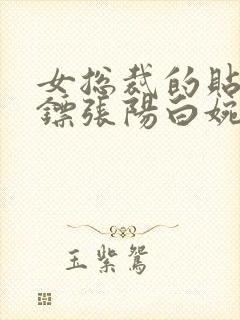 女总裁的貼
鏢張陽白婉
玉紫鴛